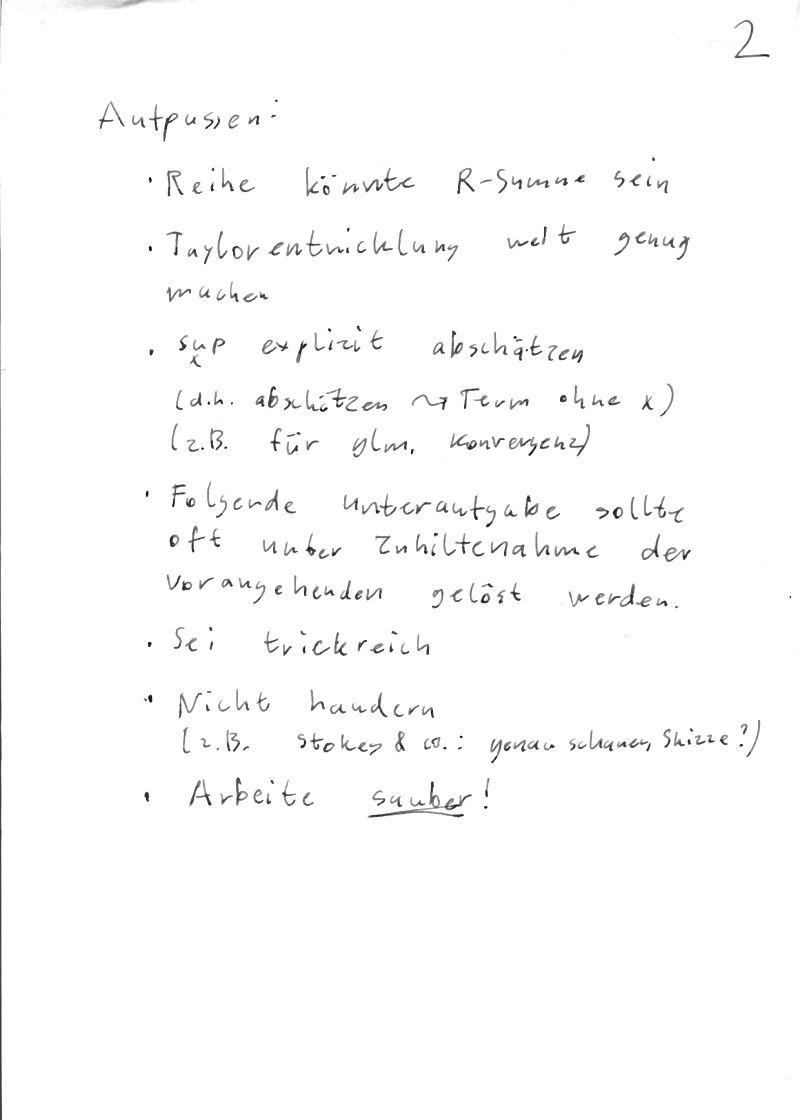 2
Aufpassen:
· Reihe könnte R-Summe sein
· Taylorentwicklung weit genug
machen
· sup explizit abschätzen
x
(d.h. abschätzen ⇝ Term ohne x)
(z.B. für glm. Konvergenz)
· Folgende Unteraufgabe sollte
oft unter Zuhilfenahme der
vorangehenden gelöst werden.
· Sei trickreich
· Nicht hudern
(z.B. Stokes & co.: genau schauen, Skizze?)
· Arbeite sauber!